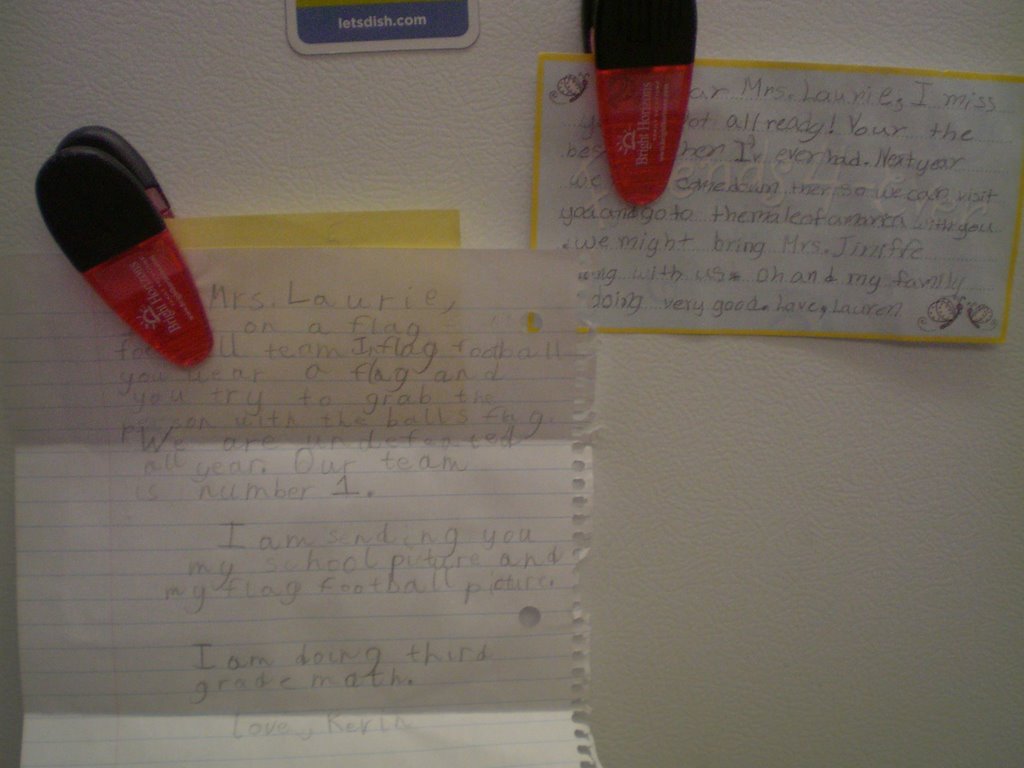 letsdish.com
Bright Horizons
Mrs. Laurie,
on a flag
ll team In flag football
you wear a flag and
you try to grab the
with the balls flag.
We are undefeated
all year. Our team
is number 1.
I am sending you
my school picture and
my flag football picture.
I am doing third
grade math.
Love, Kevin
Bright Horizons
ar Mrs. Laurie, I miss
ot all ready! Your the
bes her I'v ever had. Next year
we come down ther so we can visit
you and go to the male of amarea with you
we might bring Mrs. Jiniffe
ong with us. Oh and my family
doing very good. Love, Lauren